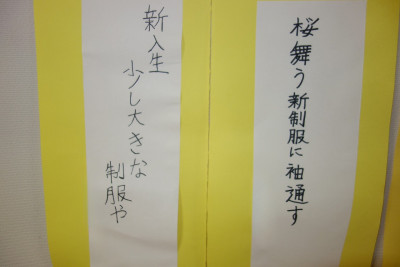 桜舞う新制服に袖通す
新入生
少し大きな
制服や